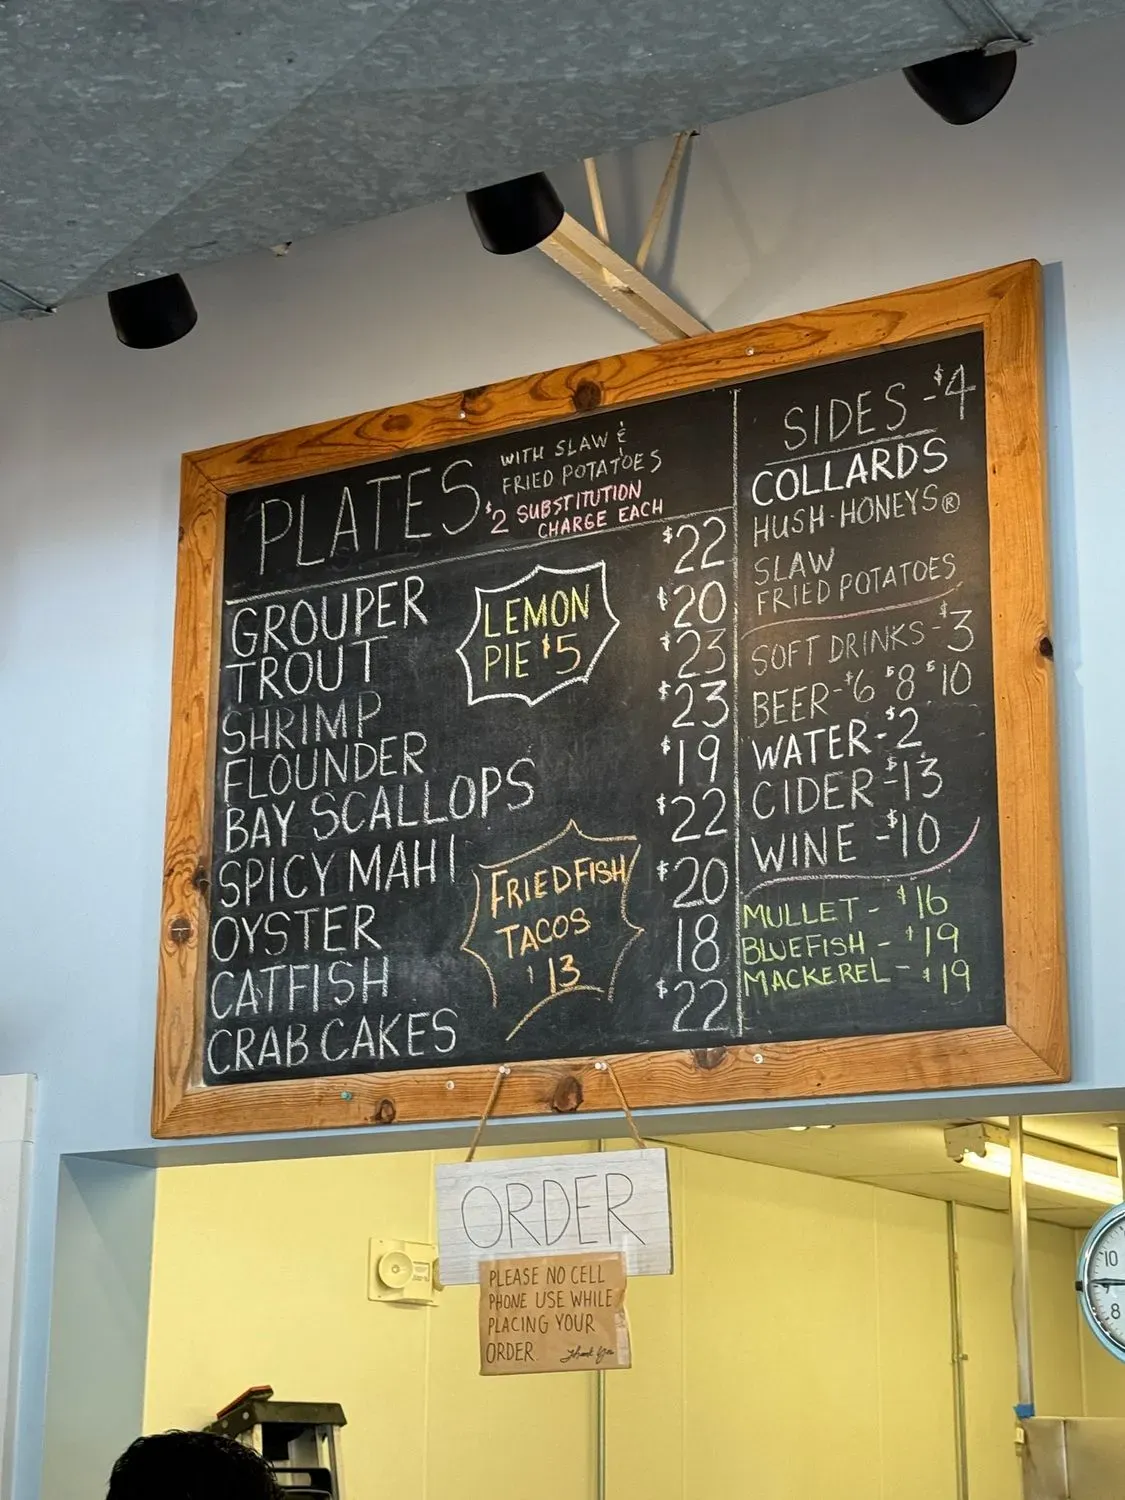 PLATES
WITH SLAW &
FRIED POTATOES
$2 SUBSTITUTION
CHARGE EACH
GROUPER $22
TROUT $20
SHRIMP $23
FLOUNDER $23
BAY SCALLOPS $19
SPICY MAHI $22
OYSTER $20
CATFISH 18
CRAB CAKES $22
LEMON
PIE $5
FRIED FISH
TACOS
$13
SIDES - $4
COLLARDS
HUSH-HONEYS®
SLAW
FRIED POTATOES
SOFT DRINKS - $3
BEER - $6 $8 $10
WATER - $2
CIDER - $13
WINE - $10
MULLET - $16
BLUEFISH - $19
MACKEREL - $19
ORDER
PLEASE NO CELL
PHONE USE WHILE
PLACING YOUR
ORDER. Thank You
10
9
8